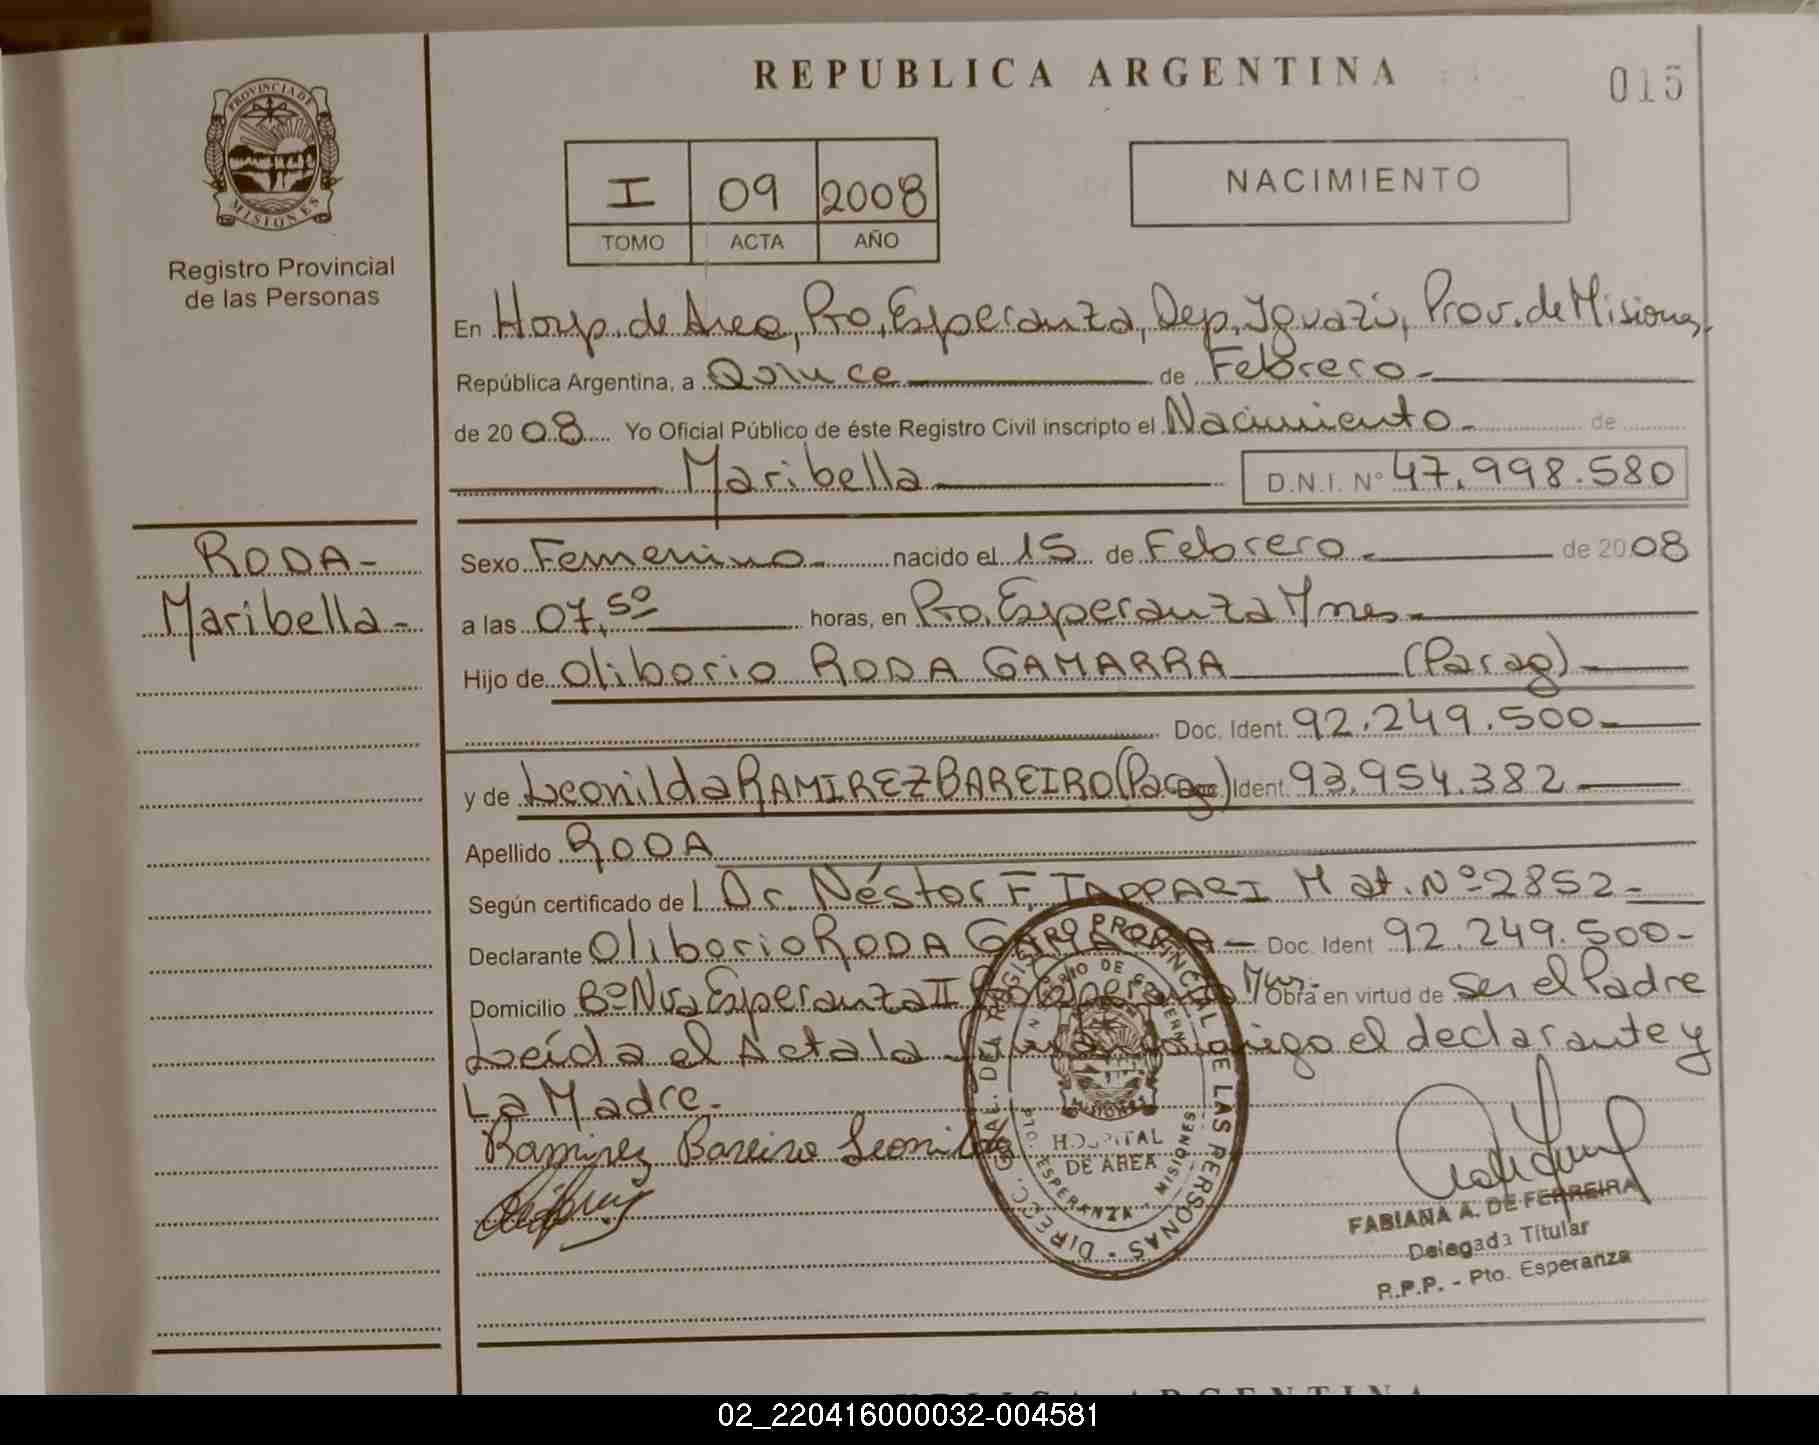 REPUBLICA ARGENTINA
015
PROVINCIA DE
MISIONES
Registro Provincial
de las Personas
I 09 2008
TOMO ACTA AÑO
NACIMIENTO
En Hosp. de Area, Pto. Esperanza, Dep. Iguazú, Prov. de Misiones,
República Argentina, a Quince de Febrero.-
de 20 08 Yo Oficial Público de éste Registro Civil inscripto el Nacimiento.- de
Maribella D.N.I. Nº 47.998.580
RODA-
Maribella-
Sexo Femenino.- nacido el 15 de Febrero.- de 20 08
a las 07,50 horas, en Pto. Esperanza Mnes.-
Hijo de Oliborio RODA GAMARRA (Parag)
Doc. Ident. 92.249.500-
y de Leonilda RAMIREZ BAREIRO (Parag) Ident. 93.954.382
Apellido RODA
Según certificado de l Dr. Néstor F. TAPPARI Mat. Nº 2852-
Declarante Oliborio RODA GAMARRA- Doc. Ident 92.249.500-
Domicilio Bº Nva Esperanza II Pto. Esperanza Mns. Obra en virtud de Ser el Padre
Leída el Acta la firma conmigo el declarante y
La Madre.-
Ramirez Bareiro Leonilda
DIRECC. GRAL. DEL REGISTRO PROVINCIAL DE LAS PERSONAS
HOSPITAL
DE AREA
PTO. ESPERANZA - MISIONES
FABIANA A. DE FERREIRA
Delegada Titular
R.P.P. - Pto. Esperanza
02_220416000032-004581